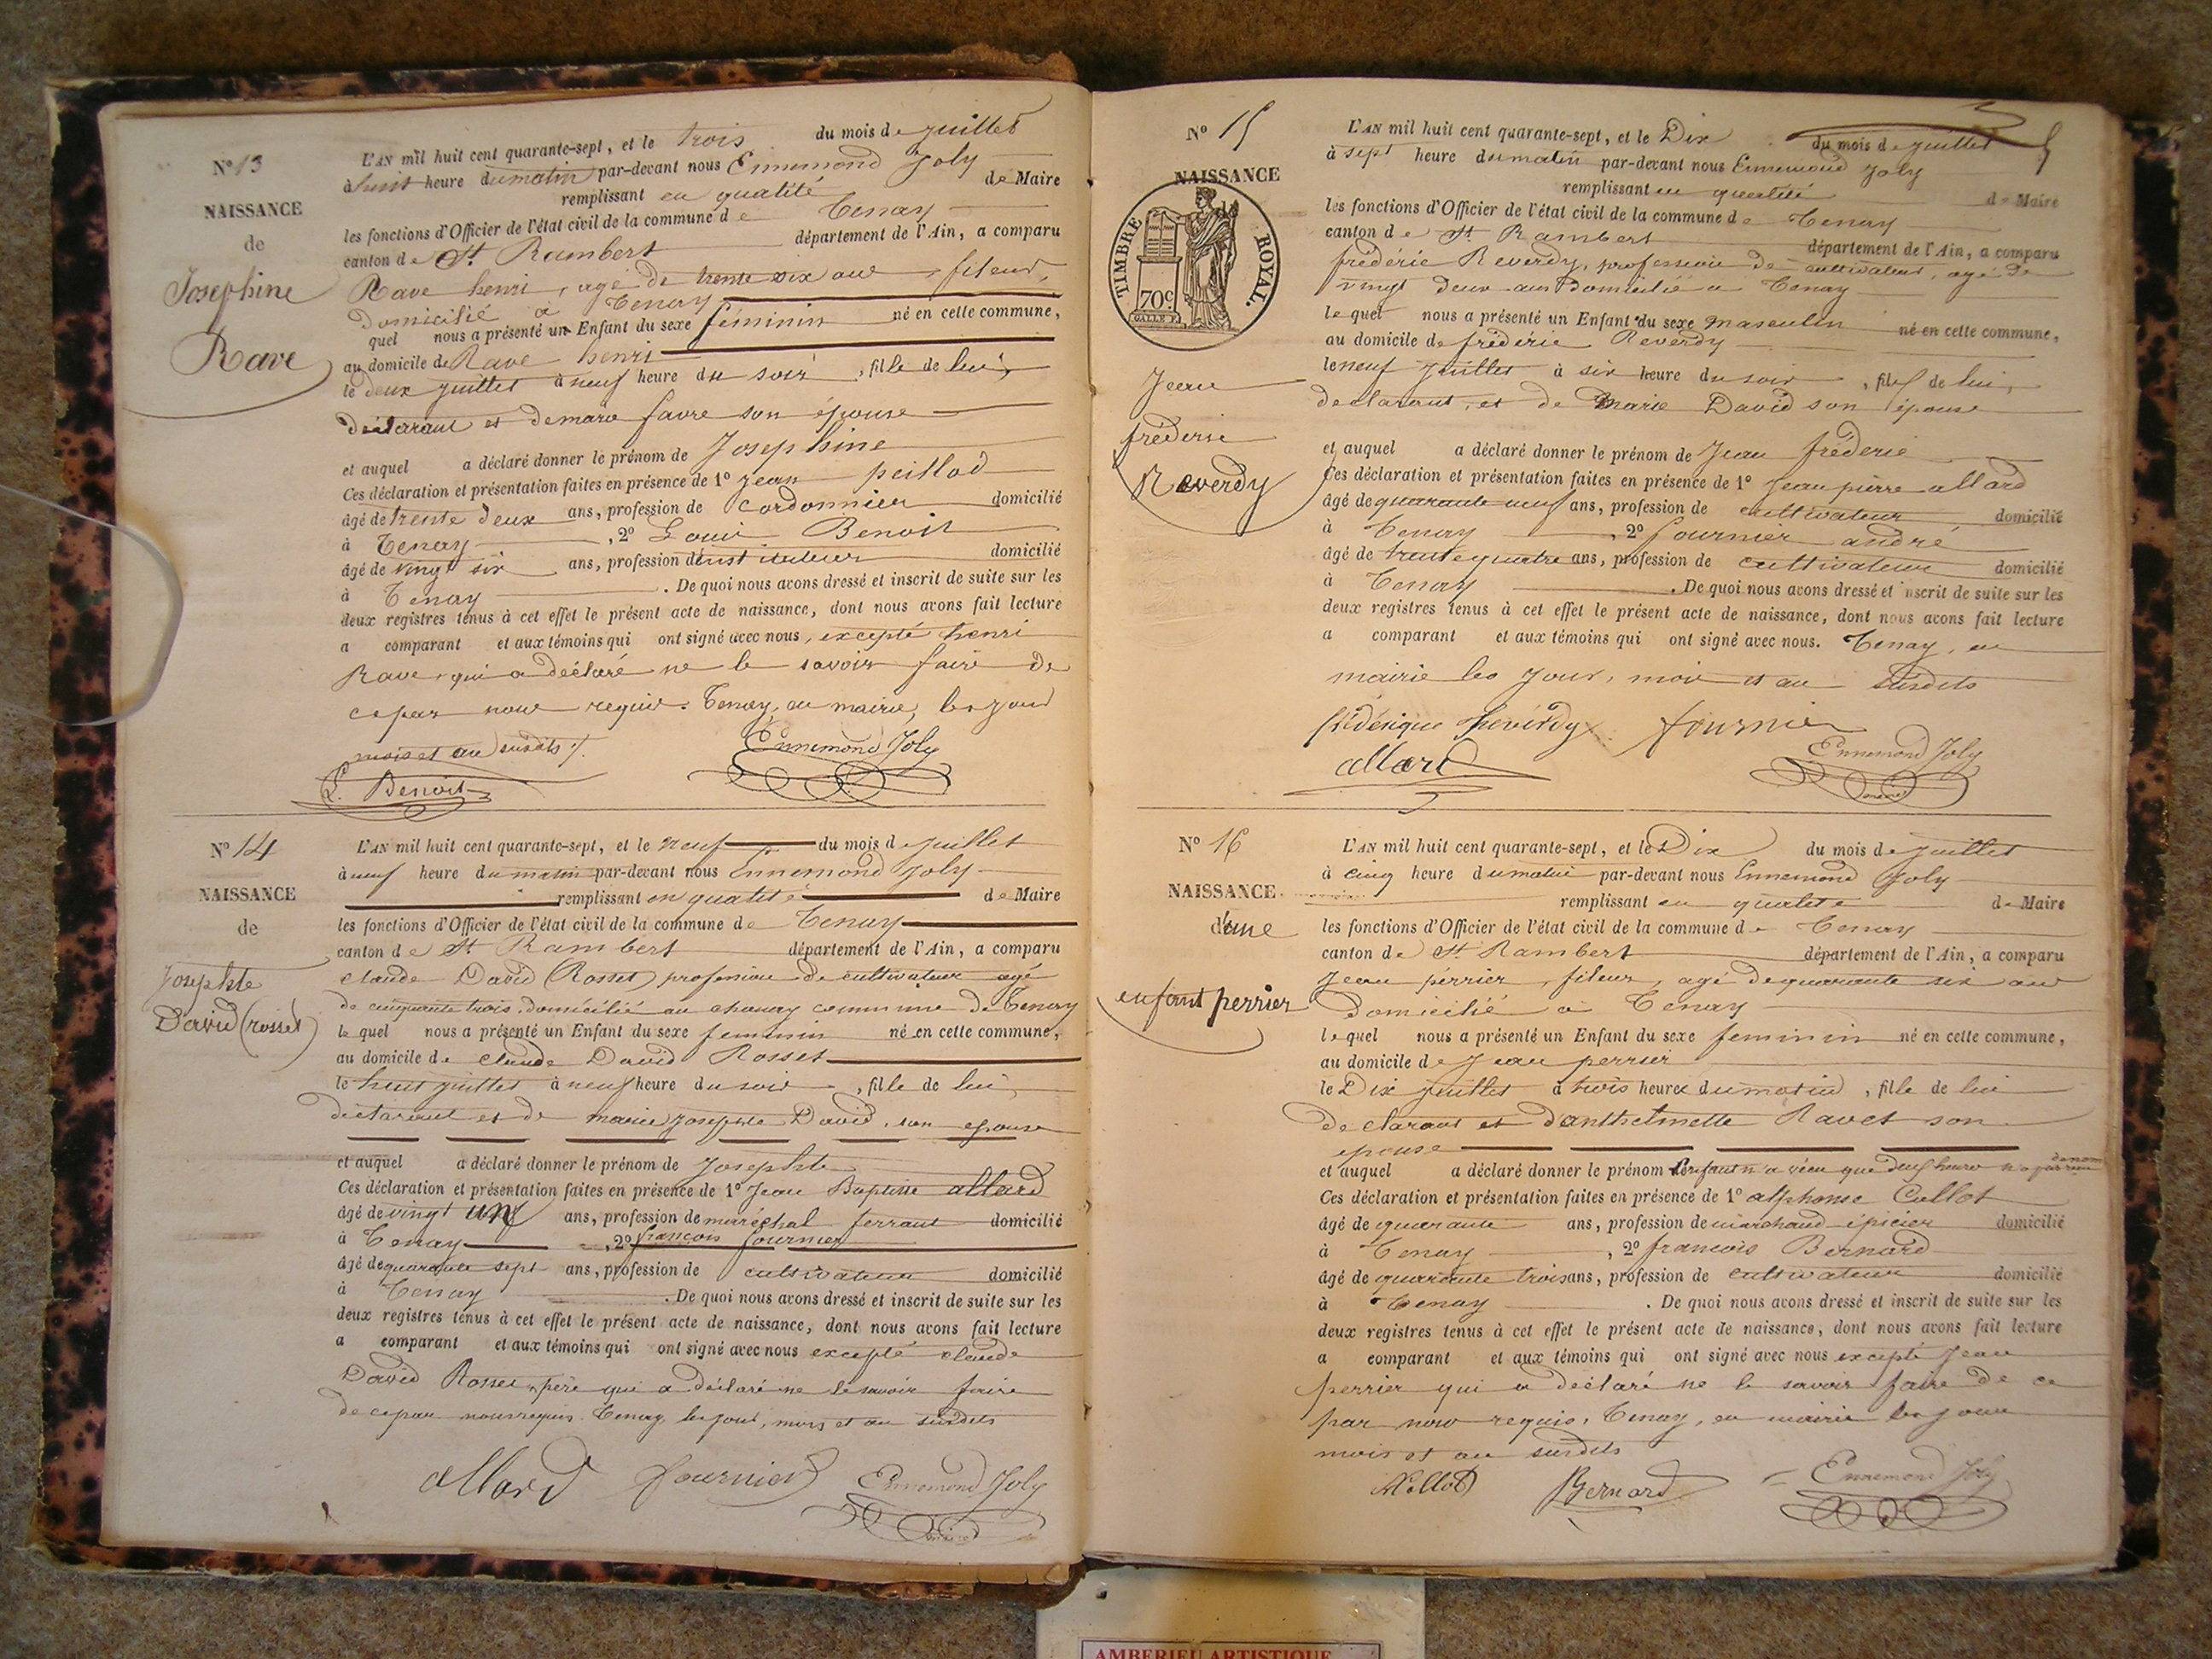 N° 13
NAISSANCE
de
Josephine
Rave
L'AN mil huit cent quarante-sept, et le trois du mois de juillet
à huit heure du matin par-devant nous Ennemond Joly
remplissant en qualité de Maire
les fonctions d'Officier de l'état civil de la commune de Tenay
canton de St Rambert département de l'Ain, a comparu
Rave henri, agé de trente six ans, fileur,
domicilié à Tenay
quel nous a présenté un Enfant du sexe féminin né en cette commune,
au domicile de Rave henri
le deux juillet à neuf heure du soir, fille de lui,
déclarant et de marie favre son épouse
et auquel a déclaré donner le prénom de Josephine
Ces déclaration et présentation faites en présence de 1° jean peillod
âgé de trente deux ans, profession de cordonnier domicilié
à Tenay, 2° Louis Benoit
âgé de vingt six ans, profession d'instituteur domicilié
à Tenay. De quoi nous avons dressé et inscrit de suite sur les
deux registres tenus à cet effet le présent acte de naissance, dont nous avons fait lecture
a comparant et aux témoins qui ont signé avec nous, excepté henri
Rave, qui a déclaré ne le savoir faire de
ce par nous requis. Tenay, en mairie, les jour
mois et an susdits
L. Benoit
Ennemond Joly
N° 14
NAISSANCE
de
Josephte
David (rosset)
L'AN mil huit cent quarante-sept, et le neuf du mois de juillet
à neuf heure du matin par-devant nous Ennemond Joly
remplissant en qualité de Maire
les fonctions d'Officier de l'état civil de la commune de Tenay
canton de St Rambert département de l'Ain, a comparu
claude David (Rosset) profession de cultivateur agé
de cinquante trois, domicilié au chouay commune de Tenay
le quel nous a présenté un Enfant du sexe feminin né en cette commune,
au domicile de claude David Rosset
le huit juillet à neuf heure du soir, fille de lui,
déclarant et de marie josephte David, son epouse
et auquel a déclaré donner le prénom de Josephte
Ces déclaration et présentation faites en présence de 1° Jean Baptiste allard
âgé de vingt un ans, profession de maréchal ferrant domicilié
à Tenay, 2° francois fournier
âgé de quarante sept ans, profession de cultivateur domicilié
à Tenay. De quoi nous avons dressé et inscrit de suite sur les
deux registres tenus à cet effet le présent acte de naissance, dont nous avons fait lecture
a comparant et aux témoins qui ont signé avec nous excepté claude
David Rosset, père qui a déclaré ne le savoir faire
de ce par nous requis. Tenay, les jour, mois et an susdits
allard fournier Ennemond Joly
maire
N° 15
NAISSANCE
TIMBRE ROYAL.
70c
Jean
fréderic
Reverdy
L'AN mil huit cent quarante-sept, et le Dix du mois de juillet
à sept heure du matin par-devant nous Ennemond Joly
remplissant en qualité de Maire
les fonctions d'Officier de l'état civil de la commune de Tenay
canton de St Rambert département de l'Ain, a comparu
fréderic Reverdy, profession de cultivateur, agé de
vingt deux ans domicilié a Tenay
le quel nous a présenté un Enfant du sexe masculin né en cette commune,
au domicile de fréderic Reverdy
le neuf juillet à six heure du soir, fils de lui,
declarant, et de Marie David son épouse
et auquel a déclaré donner le prénom de Jean fréderic
Ces déclaration et présentation faites en présence de 1° Jean pierre allard
âgé de quarante neuf ans, profession de cultivateur domicilié
à Tenay, 2° fournier andré
âgé de trente quatre ans, profession de cultivateur domicilié
à Tenay. De quoi nous avons dressé et inscrit de suite sur les
deux registres tenus à cet effet le présent acte de naissance, dont nous avons fait lecture
a comparant et aux témoins qui ont signé avec nous. Tenay, en
mairie les jour, mois et an susdits
frédérique Reverdy fournier
allard Ennemond Joly
maire
N° 16
NAISSANCE
d'une
enfant perrier
L'AN mil huit cent quarante-sept, et le Dix du mois de juillet
à cinq heure du matin par-devant nous Ennemond Joly
remplissant en qualité de Maire
les fonctions d'Officier de l'état civil de la commune de Tenay
canton de St Rambert département de l'Ain, a comparu
Jean perrier, fileur, agé de quarante six ans
domicilié a Tenay
lequel nous a présenté un Enfant du sexe feminin né en cette commune,
au domicile de Jean perrier
le Dix juillet à trois heures du matin, fille de lui
declarant et d'anthelmette Ravet son
epouse
et auquel a déclaré donner le prénom L'enfant n'a vécu que deux heures
Ces déclaration et présentation faites en présence de 1° alphonse Collot
âgé de quarante ans, profession de marchand épicier domicilié
à Tenay, 2° francois Bernard
âgé de quarante trois ans, profession de cultivateur domicilié
à Tenay. De quoi nous avons dressé et inscrit de suite sur les
deux registres tenus à cet effet le présent acte de naissance, dont nous avons fait lecture
a comparant et aux témoins qui ont signé avec nous excepté Jean
perrier qui a déclaré ne le savoir faire de ce
par nous requis, Tenay, en mairie les jour
mois et an susdits
Bernard Ennemond Joly
AMBERIEU ARTISTIQUE